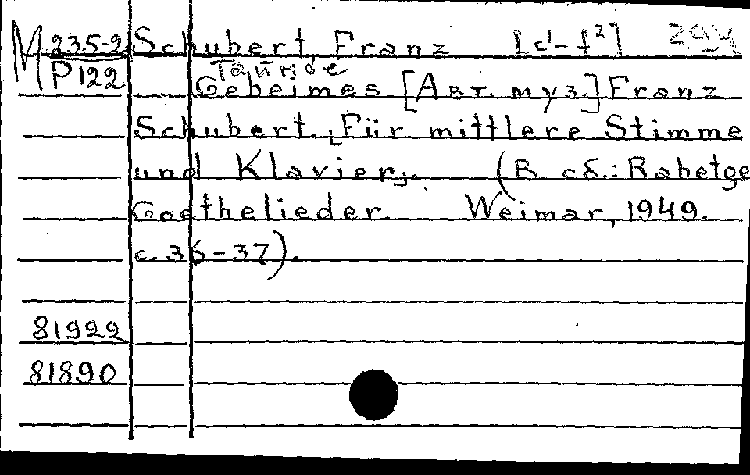 М 235-2 Schubert, Franz [c¹-f²]
Р122 Тайное
Geheimes [Авт. муз.] Franz
Schubert. [Für mittlere Stimme
und Klavier]. (В сб.: Rabetge
Goethelieder. Weimar, 1949.
с. 36-37).
81922
81890